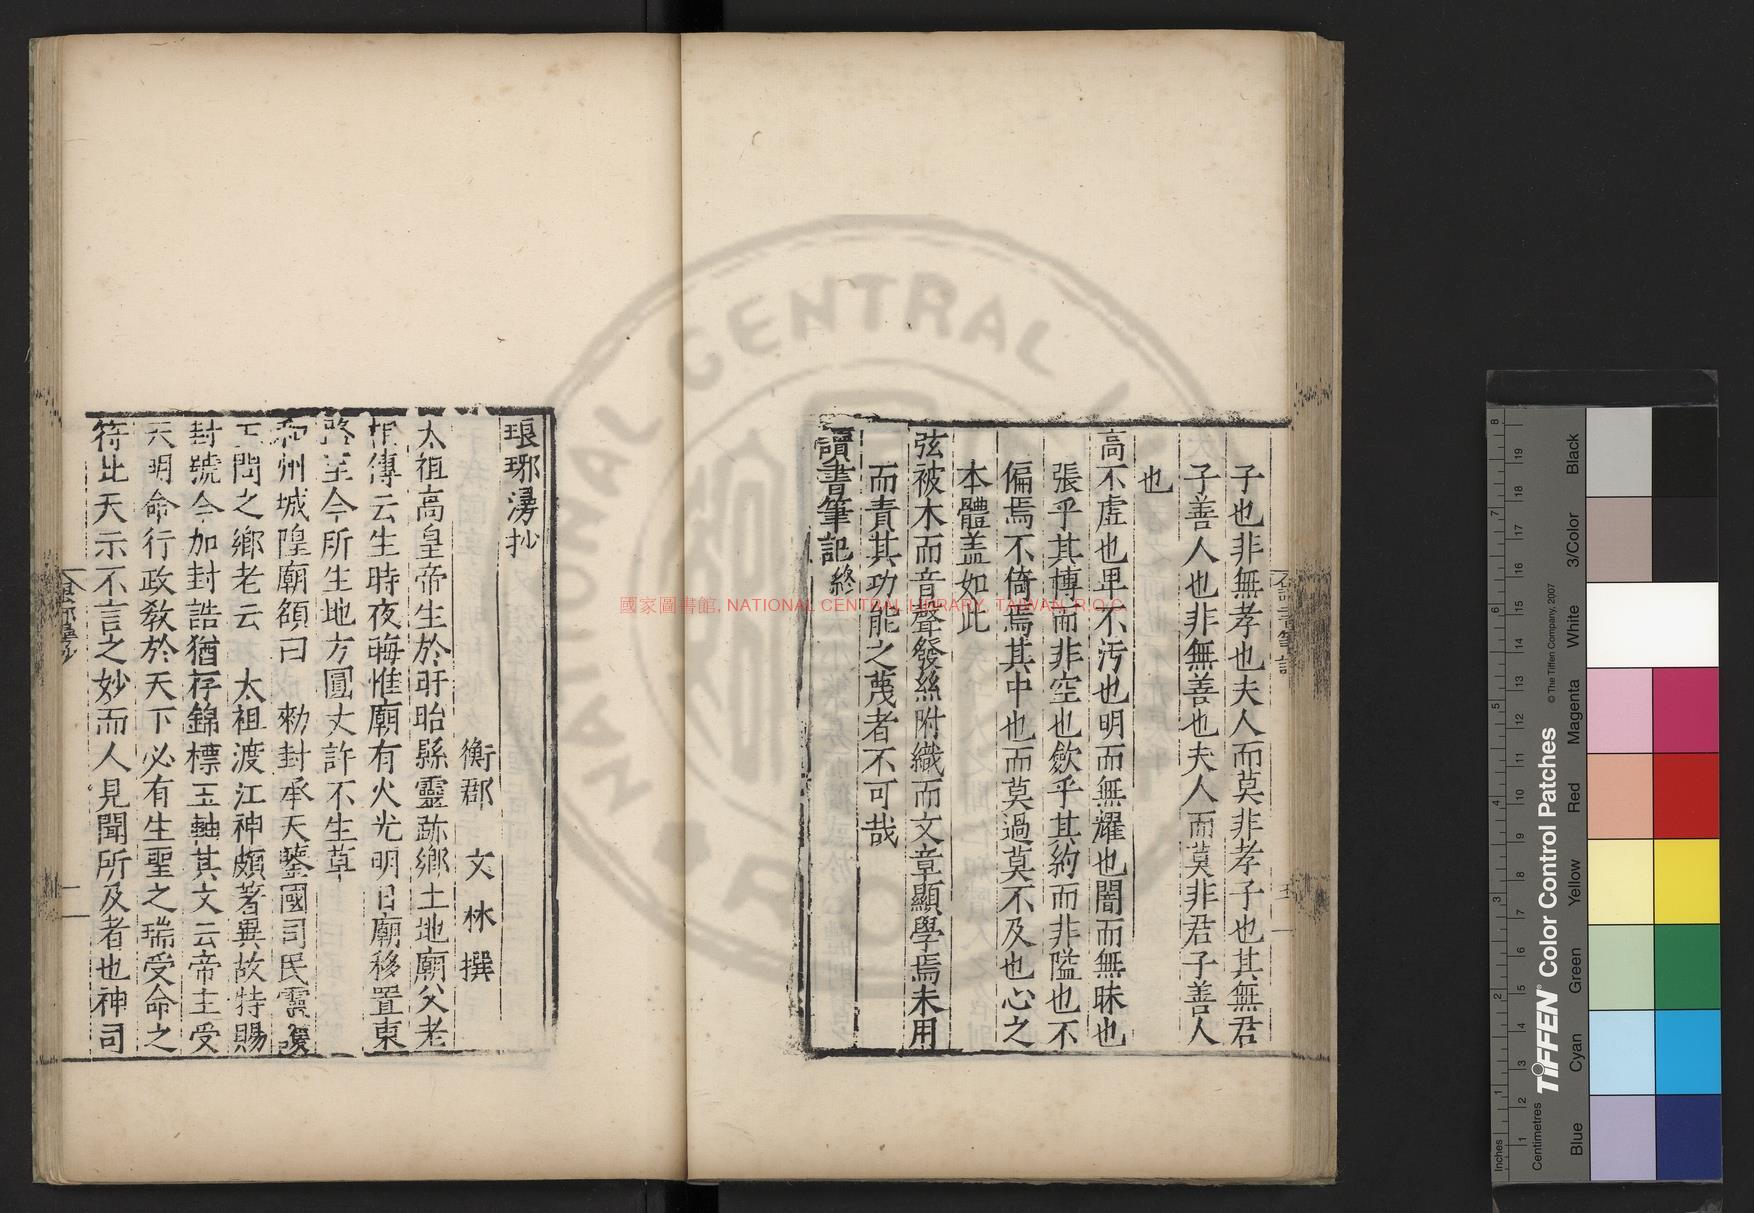 子也非無孝也夫人而莫非孝子也其無君
子善人也非無善也夫人而莫非君子善人
也
高不虛也卑不污也明而無耀也闇而無昧也
張乎其博而非空也歛乎其約而非隘也不
偏焉不倚焉其中也而莫過莫不及也心之
本體盖如此
弦被木而音聲發絲附織而文章顯學焉未用
而責其功能之蔑者不可哉
讀書筆記終
琅琊漫抄
衡郡 文林 撰
太祖高皇帝生於盱眙縣靈跡鄉土地廟父老
相傳云生時夜晦惟廟有火光明日廟移置東
路至今所生地方圓丈許不生草
和州城隍廟額曰 勑封承天鑒國司民靈護
王問之鄉老云 太祖渡江神頗著異故特賜
封號今加封誥猶存錦標玉軸其文云帝王受
天明命行政教於天下必有生聖之瑞受命之
符此天示不言之妙而人見聞所及者也神司
國家圖書館, NATIONAL CENTRAL LIBRARY, TAIWAN, R.O.C
NATIONAL CENTRAL
Inches
Centimetres
TIFFEN® Color Control Patches
© The Tiffen Company, 2007
Blue
Cyan
Green
Yellow
Red
Magenta
White
3/Color
Black